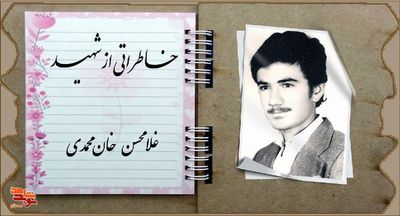 خاطراتی از شهید
غلامحسن خان محمدی